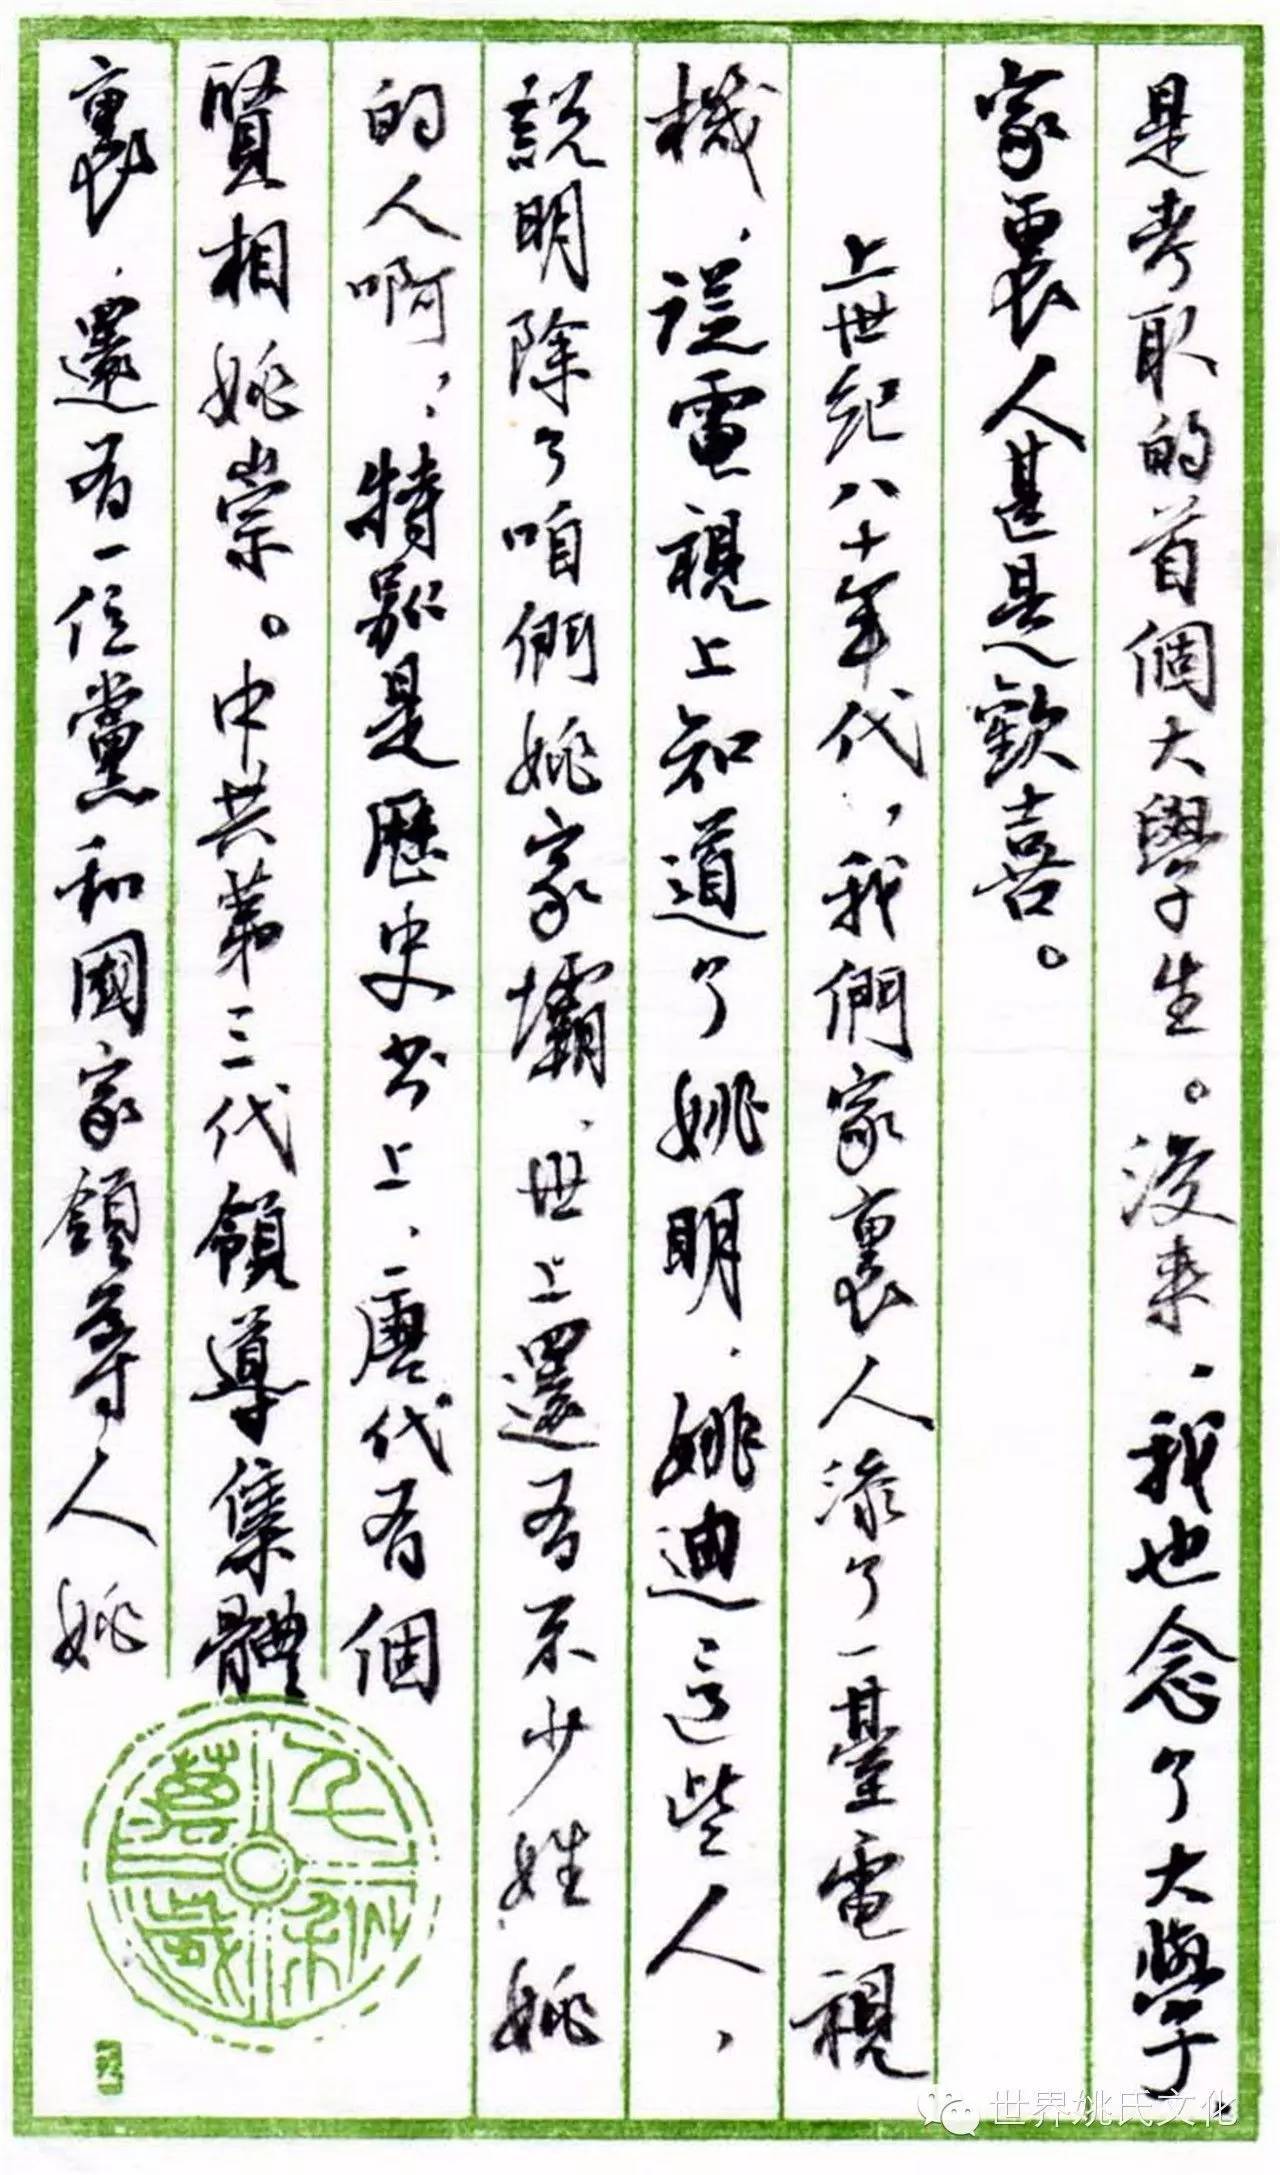 是考取的首個大學生。後来，我也念了大學，
家裏人甚是歡喜。
上世紀八十年代，我們家裏人添了一臺電視
機，從電視上知道了姚明、姚迪這些人，
說明除了咱們姚家壩，世上還有不少姓姚
的人啊，特別是歷史书上，唐代有個
賢相姚崇。中共第三代領導集體
裏，還有一位黨和國家領導人姚
世界姚氏文化